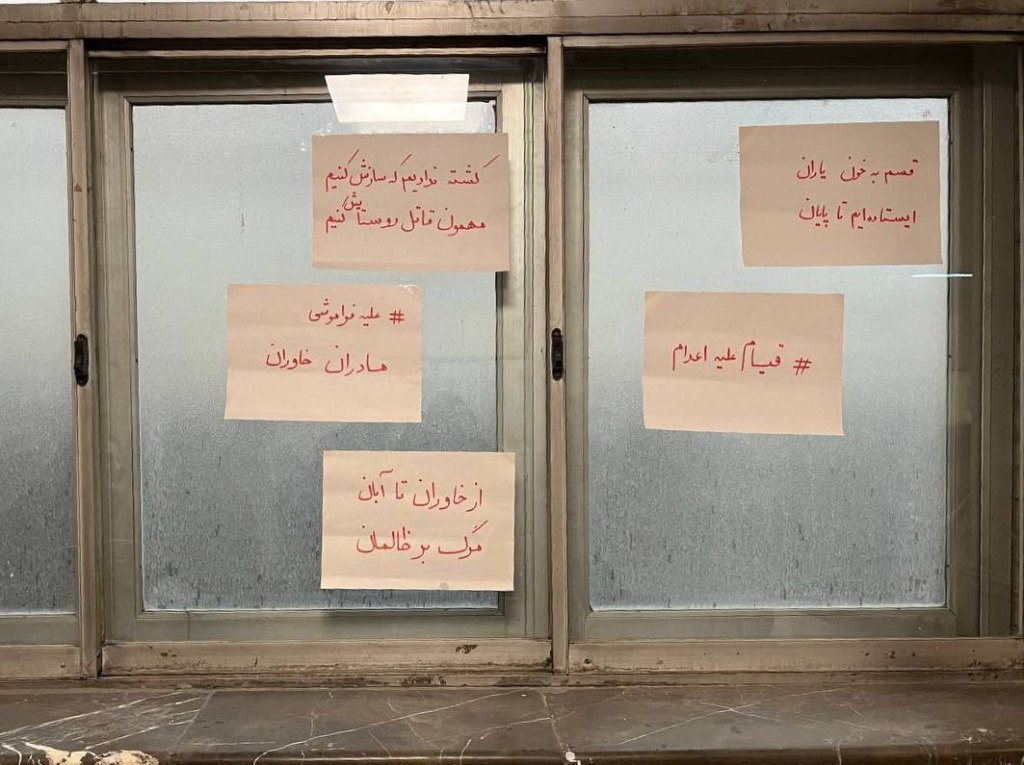 قسم به خون یاران
ایستاده‌ایم تا پایان
# قیام علیه اعدام
کشته ندادیم که سازش کنیم
مهمون قاتل رو ستایش کنیم
# علیه فراموشی
مادران خاوران
از خاوران تا آبان
مرگ بر ظالمان